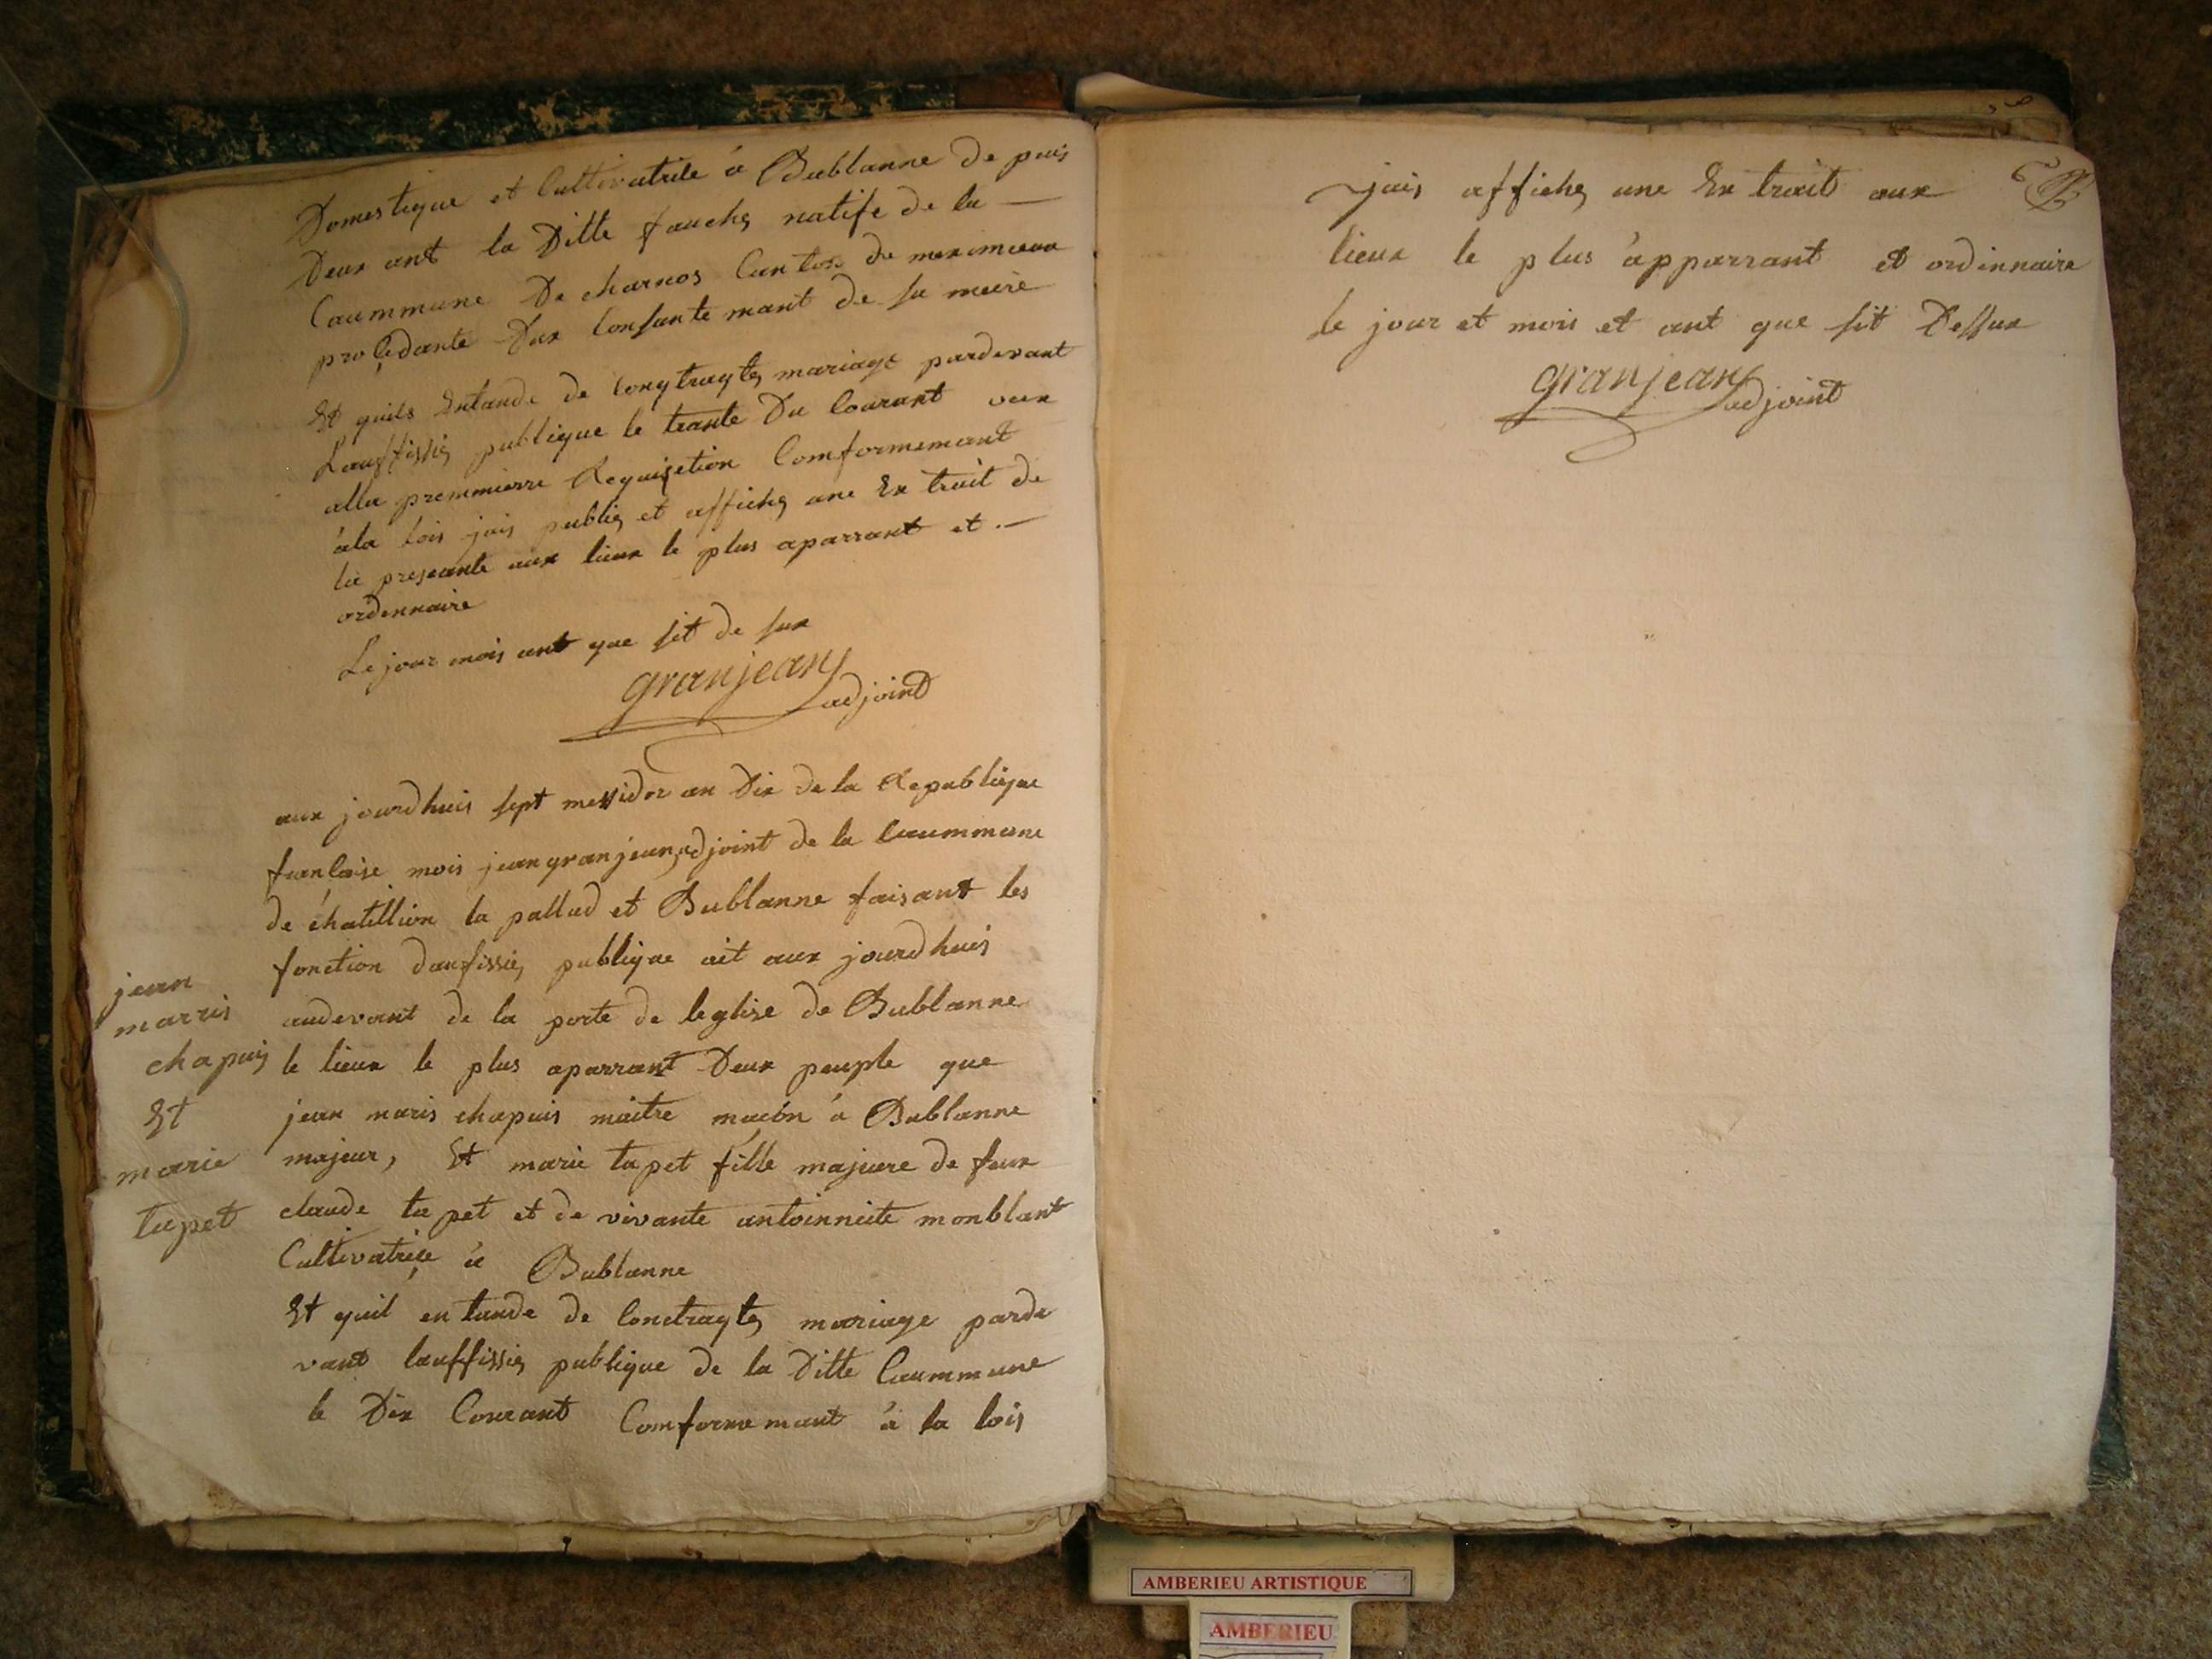 Domestique et Cultivatrice á Bublanne de puis
Deux ant la Ditte fauche natife de la —
Caummune De charnos Canton de meximieux
proçedante Dux Consantemant de sa meire
Et quils Entande de Congtraygte mariage pardevant
Lauffissie publique le trante Du Courant veux
alla premmierre Requisetion Comformemant
àla Lois jais publie et affiche une Ex trait de
la preseante aux lieux le plus aparrant et —
ordennaire
Le jour mois ant que sit de sux
granjean
adjoint
aux jourdhuis sept messidor an Dix de la Republique
franCaise mois jean granjean, adjoint de la Caummune
de chatillion la pallud et Bublanne faisant les
fonction daufissie publique ait aux jourdhuis
audevant de la porte de leglise de Bublanne
le lieux le plus aparrant Deux peuple que
jean maris chapuis maitre macon á Bublanne
majeur, Et marie tapet fille majeure de feux
claude tapet et de vivante antoinneite monblant
Cultivatriçe á Bublanne
Et quil entande de Conctraygte mariage parde
vant lauffissie publique de la Ditte Caummune
le Dix Courant Comformemant á la lois
jean
marris
chapuis
Et
marie
tapet
jais affiche une Ex trait aux
lieux le plus àpparrant et ordinnaire
Le jour et mois et ant que sit Dessux
granjean
adjoint
AMBERIEU ARTISTIQUE
AMBERIEU